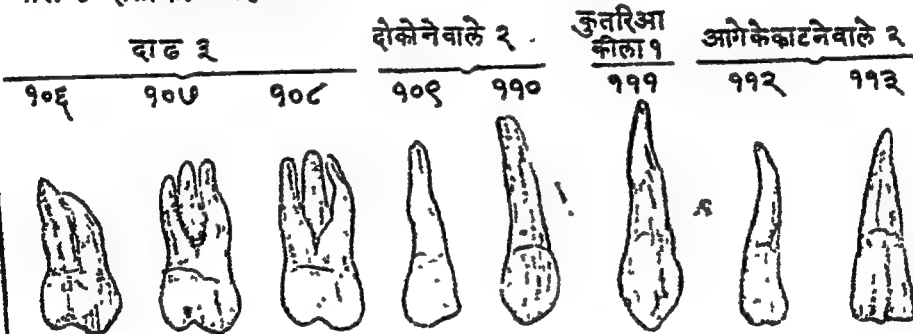 दाढ ३
दोकोनेवाले २
कुतरिआ
कीला १
आगेकेकाटनेवाले २
१०६ १०७ १०८ १०९ ११० १११ ११२ ११३